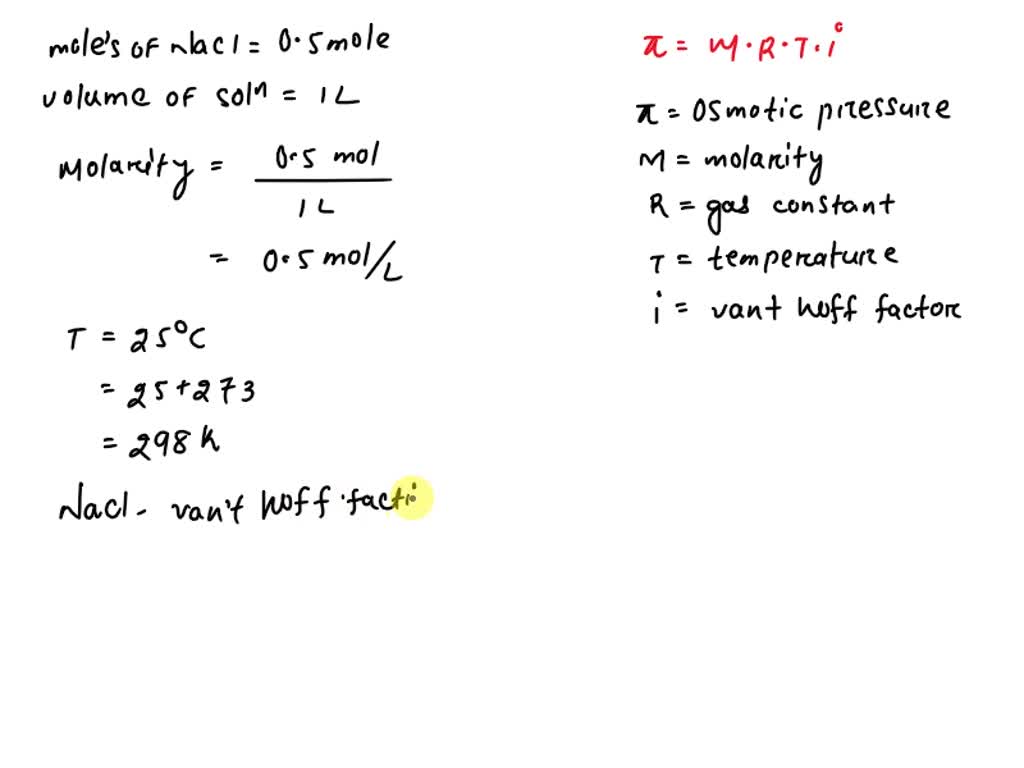 mole's of Nacl = 0.5 mole
volume of solⁿ = 1L
Molarity = 0.5 mol
1L
= 0.5 mol/L
T = 25°C
= 25 + 273
= 298 K
Nacl - van't hoff facti
π = M·R·T·i
π = Osmotic pressure
M = molarity
R = gas constant
T = temperature
i = vant hoff factor